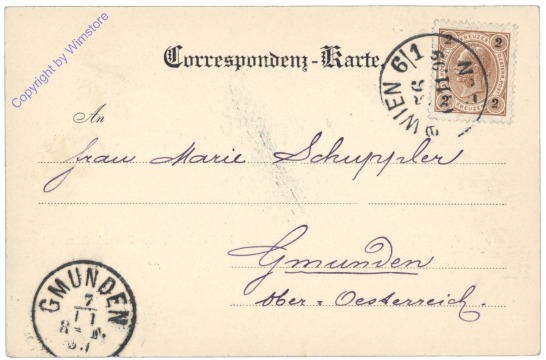 Copyright by Wimstore
Correspondenz-Karte.
2 KREUZER 2
2 KREUZER 2
WIEN 6/1
An
Frau Marie Schuppler
Gmunden
Ober=Oesterreich.
GMUNDEN
7
11